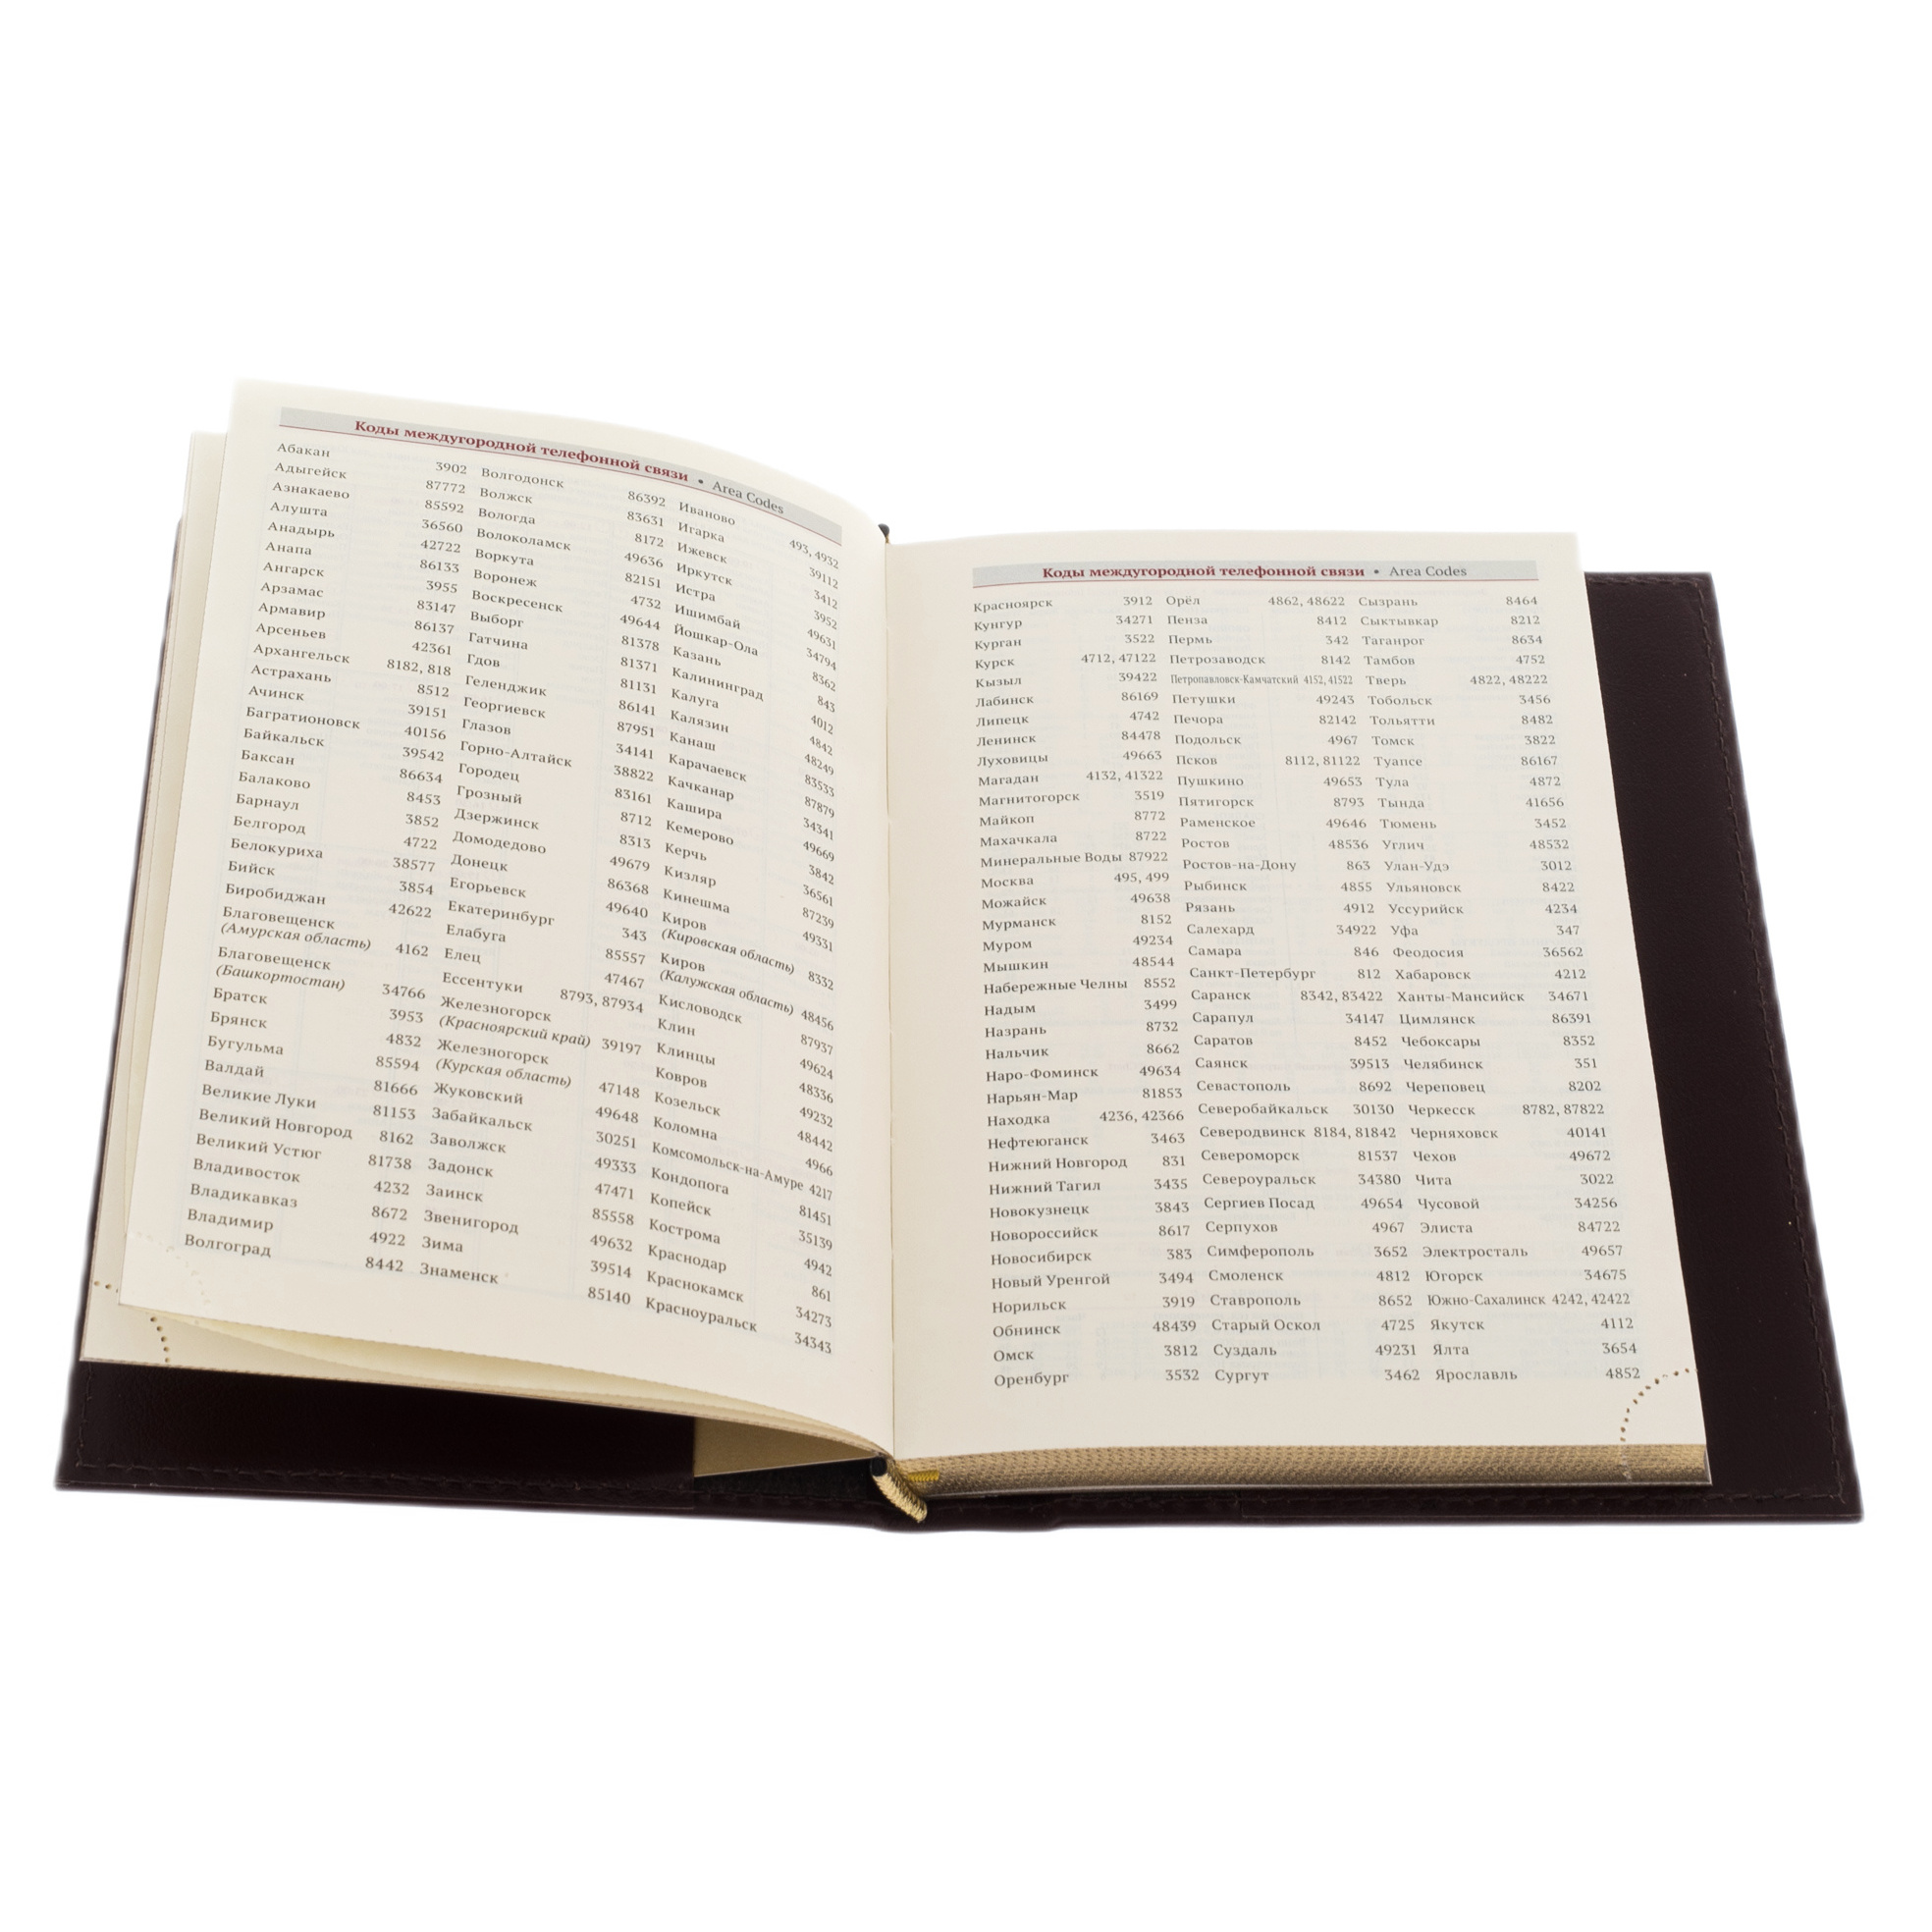 Коды междугородной телефонной связи • Area Codes
Абакан 3902
Адыгейск 87772
Азнакаево 85592
Алушта 36560
Анадырь 42722
Анапа 86133
Ангарск 3955
Арзамас 83147
Армавир 86137
Арсеньев 42361
Архангельск 8182, 818
Астрахань 8512
Ачинск 39151
Багратионовск 40156
Байкальск 39542
Баксан 86634
Балаково 8453
Барнаул 3852
Белгород 4722
Белокуриха 38577
Бийск 3854
Биробиджан 42622
Благовещенск
(Амурская область) 4162
Благовещенск
(Башкортостан) 34766
Братск 3953
Брянск 4832
Бугульма 85594
Валдай 81666
Великие Луки 81153
Великий Новгород 8162
Великий Устюг 81738
Владивосток 4232
Владикавказ 8672
Владимир 4922
Волгоград 8442
Волгодонск 86392
Волжск 83631
Вологда 8172
Волоколамск 49636
Воркута 82151
Воронеж 4732
Воскресенск 49644
Выборг 81378
Гатчина 81371
Гдов 81131
Геленджик 86141
Георгиевск 87951
Глазов 34141
Горно-Алтайск 38822
Городец 83161
Грозный 8712
Дзержинск 8313
Домодедово 49679
Донецк 86368
Егорьевск 49640
Екатеринбург 343
Елабуга 85557
Елец 47467
Ессентуки 8793, 87934
Железногорск
(Красноярский край) 39197
Железногорск
(Курская область) 47148
Жуковский 49648
Забайкальск 30251
Заволжск 49333
Задонск 47471
Заинск 85558
Звенигород 49632
Зима 39514
Знаменск 85140
Иваново 493, 4932
Игарка 39112
Ижевск 3412
Иркутск 3952
Истра 49631
Ишимбай 34794
Йошкар-Ола 8362
Казань 843
Калининград 4012
Калуга 4842
Калязин 48249
Канаш 83533
Карачаевск 87879
Качканар 34341
Кашира 49669
Кемерово 3842
Керчь 36561
Кизляр 87239
Кинешма 49331
Киров
(Кировская область) 8332
Киров
(Калужская область) 48456
Кисловодск 87937
Клин 49624
Клинцы 48336
Ковров 49232
Козельск 48442
Коломна 4966
Комсомольск-на-Амуре 4217
Кондопога 81451
Копейск 35139
Кострома 4942
Краснодар 861
Краснокамск 34273
Красноуральск 34343
Коды междугородной телефонной связи • Area Codes
Красноярск 3912
Кунгур 34271
Курган 3522
Курск 4712, 47122
Кызыл 39422
Лабинск 86169
Липецк 4742
Ленинск 84478
Луховицы 49663
Магадан 4132, 41322
Магнитогорск 3519
Майкоп 8772
Махачкала 8722
Минеральные Воды 87922
Москва 495, 499
Можайск 49638
Мурманск 8152
Муром 49234
Мышкин 48544
Набережные Челны 8552
Надым 3499
Назрань 8732
Нальчик 8662
Наро-Фоминск 49634
Нарьян-Мар 81853
Находка 4236, 42366
Нефтеюганск 3463
Нижний Новгород 831
Нижний Тагил 3435
Новокузнецк 3843
Новороссийск 8617
Новосибирск 383
Новый Уренгой 3494
Норильск 3919
Обнинск 48439
Омск 3812
Оренбург 3532
Орёл 4862, 48622
Пенза 8412
Пермь 342
Петрозаводск 8142
Петропавловск-Камчатский 4152, 41522
Петушки 49243
Печора 82142
Подольск 4967
Псков 8112, 81122
Пушкино 49653
Пятигорск 8793
Раменское 49646
Ростов 48536
Ростов-на-Дону 863
Рыбинск 4855
Рязань 4912
Салехард 34922
Самара 846
Санкт-Петербург 812
Саранск 8342, 83422
Сарапул 34147
Саратов 8452
Саянск 39513
Севастополь 8692
Северобайкальск 30130
Северодвинск 8184, 81842
Североморск 81537
Североуральск 34380
Сергиев Посад 49654
Серпухов 4967
Симферополь 3652
Смоленск 4812
Ставрополь 8652
Старый Оскол 4725
Суздаль 49231
Сургут 3462
Сызрань 8464
Сыктывкар 8212
Таганрог 8634
Тамбов 4752
Тверь 4822, 48222
Тобольск 3456
Тольятти 8482
Томск 3822
Туапсе 86167
Тула 4872
Тында 41656
Тюмень 3452
Углич 48532
Улан-Удэ 3012
Ульяновск 8422
Уссурийск 4234
Уфа 347
Феодосия 36562
Хабаровск 4212
Ханты-Мансийск 34671
Цимлянск 86391
Чебоксары 8352
Челябинск 351
Череповец 8202
Черкесск 8782, 87822
Черняховск 40141
Чехов 49672
Чита 3022
Чусовой 34256
Элиста 84722
Электросталь 49657
Югорск 34675
Южно-Сахалинск 4242, 42422
Якутск 4112
Ялта 3654
Ярославль 4852